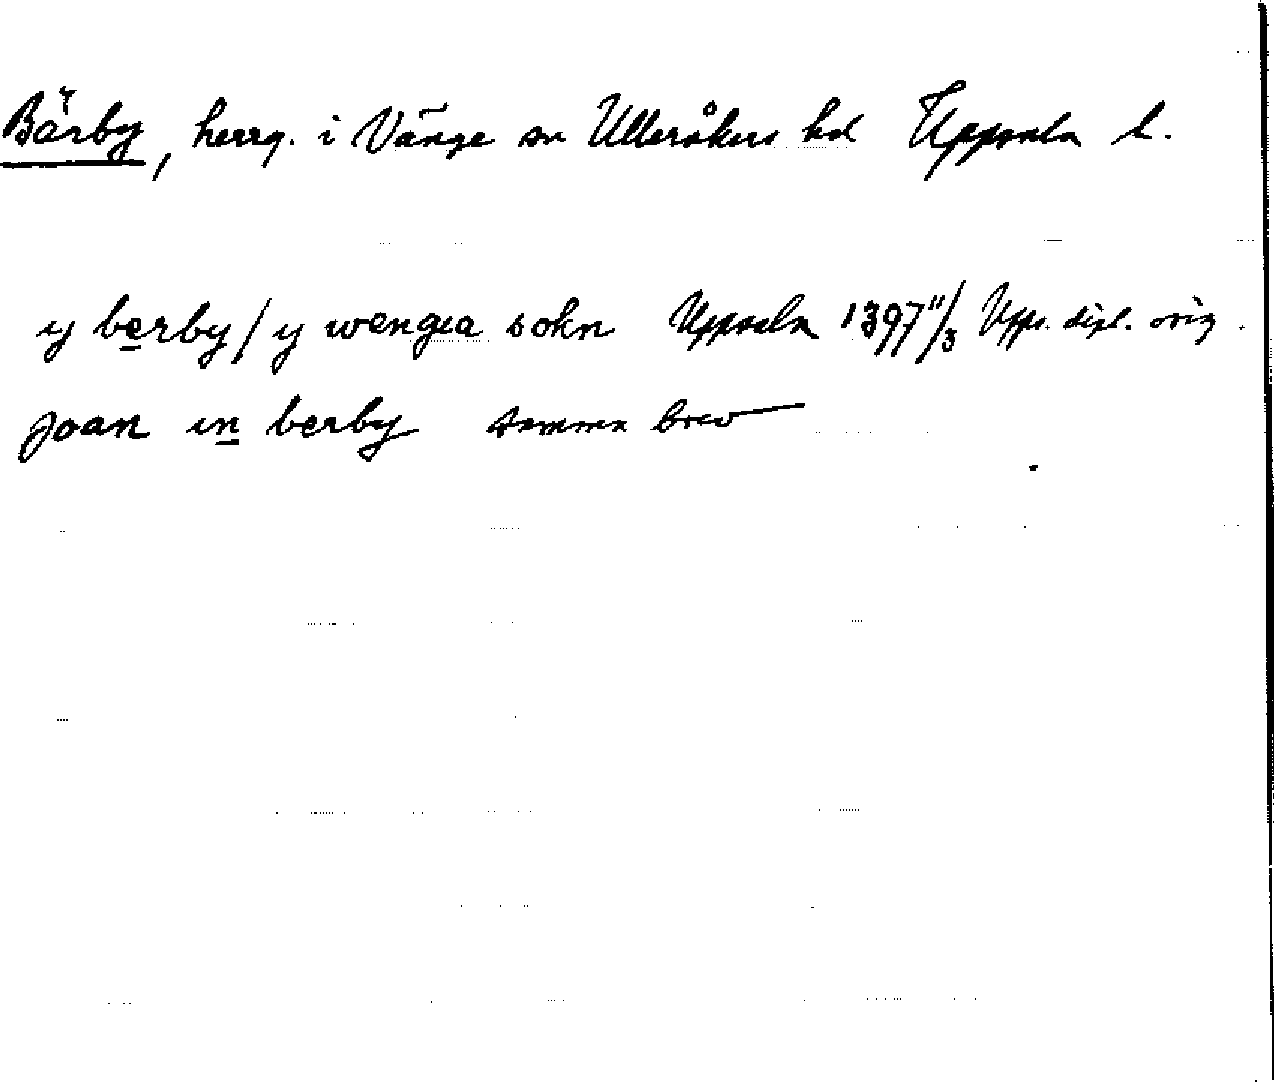 Bärby, herrg. i Vänge sn Ulleråkers hd Uppsala l.
y berby / y wengea sokn Uppsala 1397 11/3 Upps. dipl. orig.
joan in berby samma brev